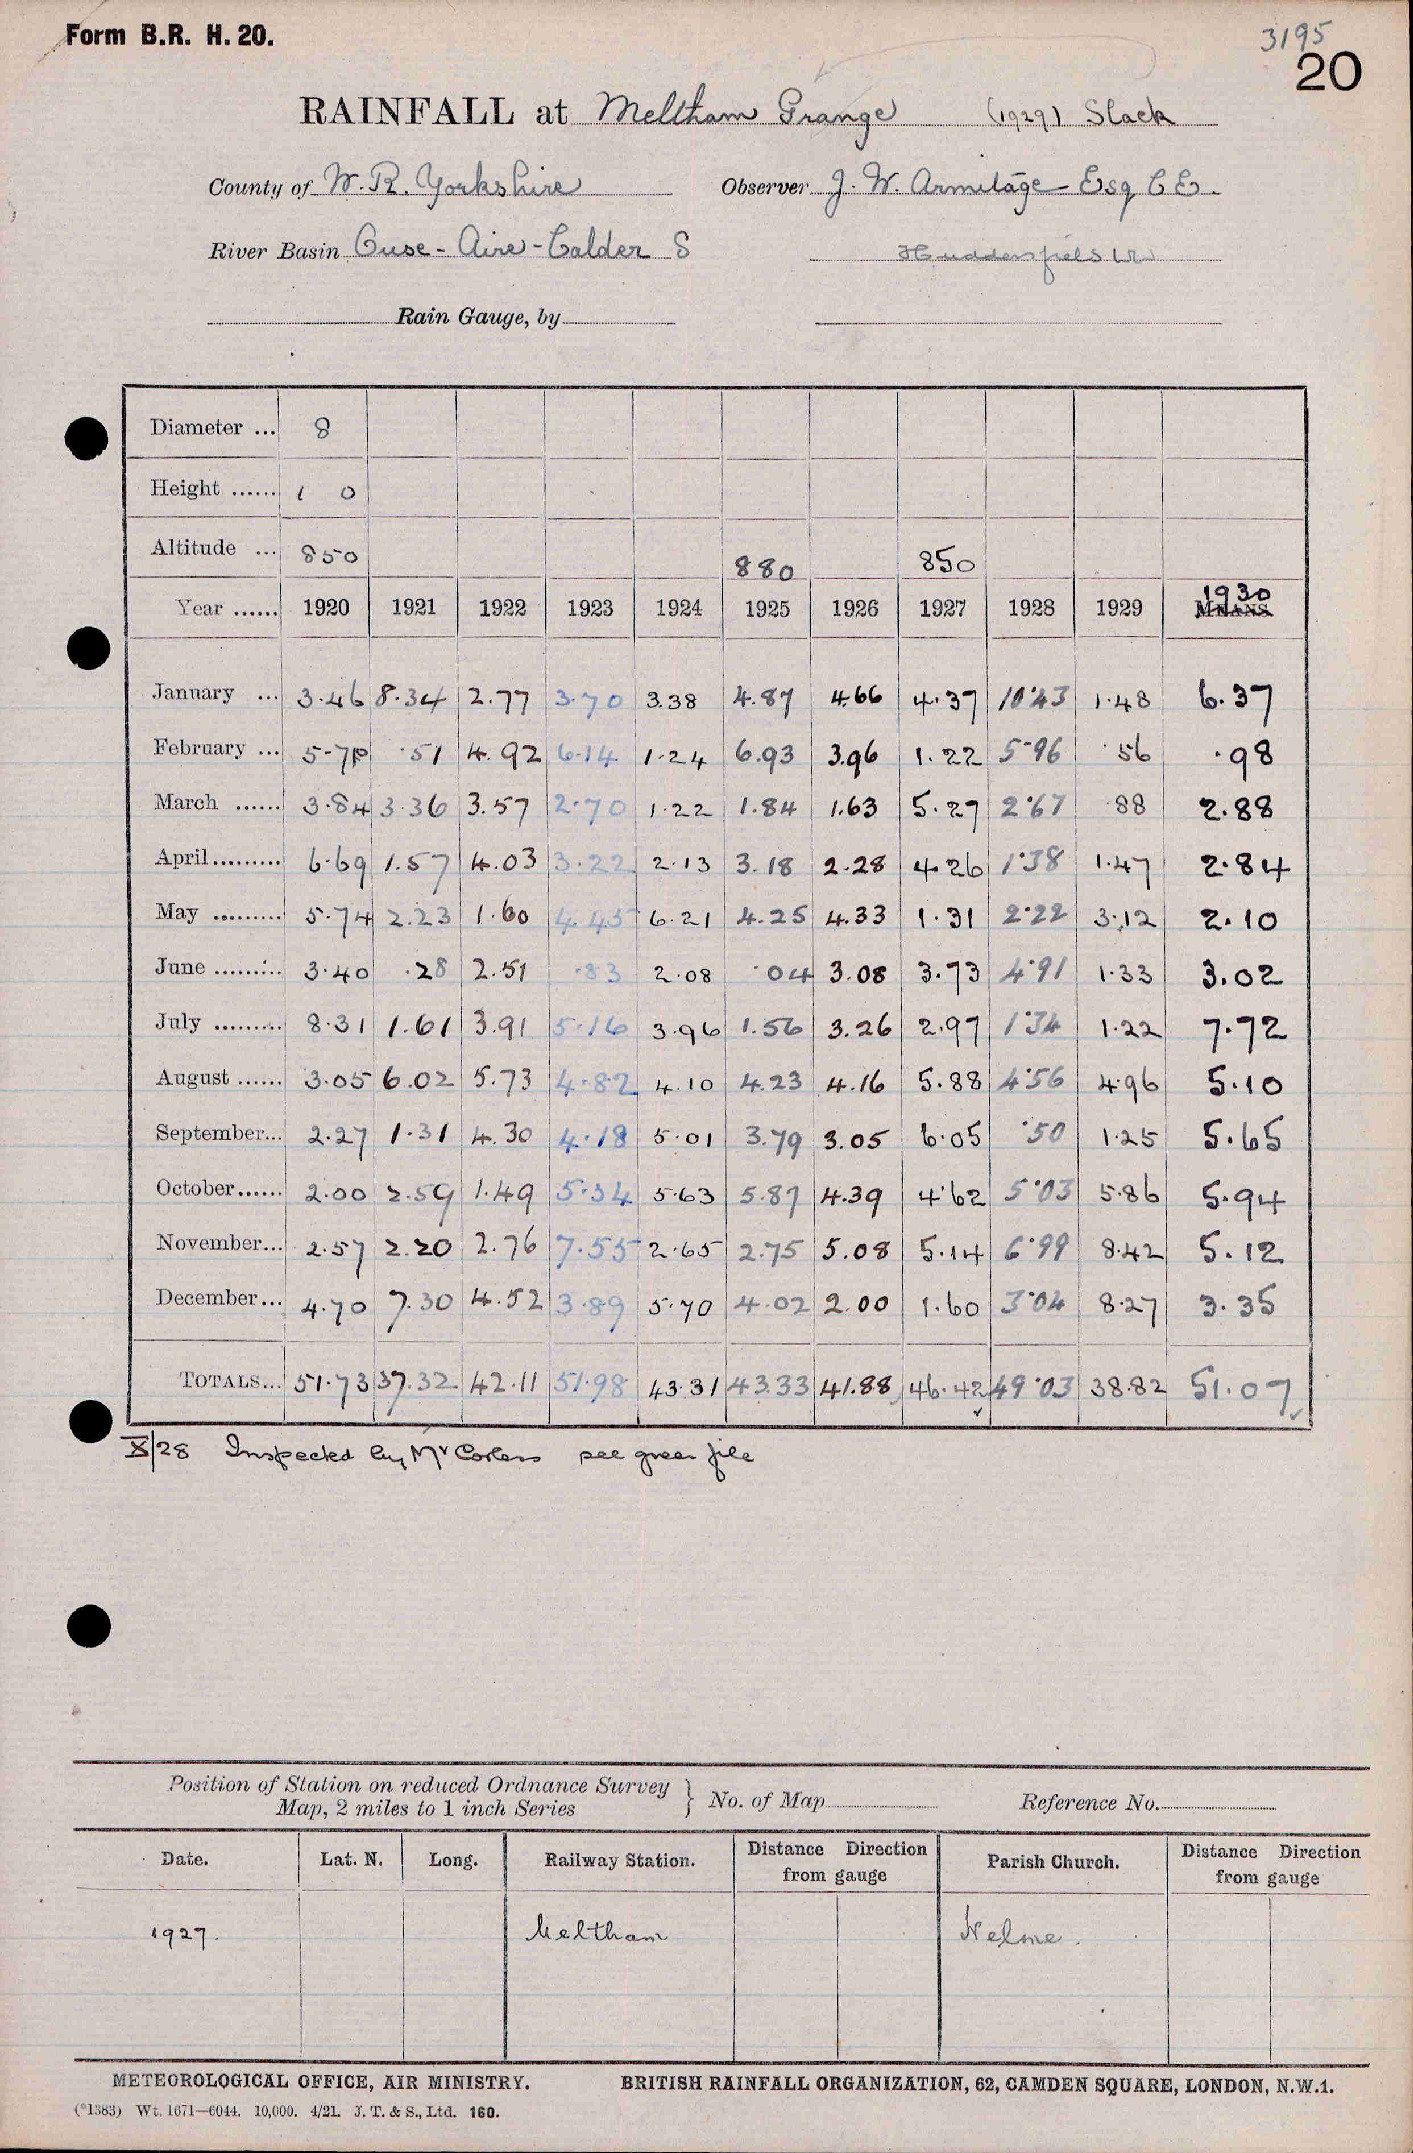 Form B.R. H. 20.
3195
20
RAINFALL at Meltham Grange (1929) Slack
County of W. R. Yorkshire Observer J. W. Armitage Esq C E.
River Basin Ouse - Aire - Calder S Huddersfield W
Rain Gauge, by
Diameter ... 8
Height ...... 1 0
Altitude ... 850 880 850
Year ...... 1920 1921 1922 1923 1924 1925 1926 1927 1928 1929 1930 MEANS
January ... 3.46 8.34 2.77 3.70 3.38 4.87 4.66 4.37 10.43 1.48 6.37
February ... 5.70 .51 4.92 6.14 1.24 6.93 3.96 1.22 5.96 .56 .98
March ...... 3.84 3.36 3.57 2.70 1.22 1.84 1.63 5.27 2.67 .88 2.88
April ......... 6.69 1.57 4.03 3.22 2.13 3.18 2.28 4.26 1.38 1.47 2.84
May ......... 5.74 2.23 1.60 4.45 6.21 4.25 4.33 1.31 2.22 3.12 2.10
June ......... 3.40 .28 2.51 .83 2.08 .04 3.08 3.73 4.91 1.33 3.02
July ......... 8.31 1.61 3.91 5.16 3.96 1.56 3.26 2.97 1.34 1.22 7.72
August ...... 3.05 6.02 5.73 4.82 4.10 4.23 4.16 5.88 4.56 4.96 5.10
September... 2.27 1.31 4.30 4.18 5.01 3.79 3.05 6.05 .50 1.25 5.65
October...... 2.00 2.59 1.49 5.34 5.63 5.87 4.39 4.62 5.03 5.86 5.94
November... 2.57 2.20 2.76 7.55 2.65 2.75 5.08 5.14 6.99 8.42 5.12
December... 4.70 7.30 4.52 3.89 5.70 4.02 2.00 1.60 3.04 8.27 3.35
TOTALS... 51.73 37.32 42.11 51.98 43.31 43.33 41.88 46.42 49.03 38.82 51.07
X/28 Inspected by Mr Corless see green file
Position of Station on reduced Ordnance Survey
Map, 2 miles to 1 inch Series } No. of Map Reference No.
Date. Lat. N. Long. Railway Station. Distance Direction from gauge Parish Church. Distance Direction from gauge
1927. Meltham Helme.
METEOROLOGICAL OFFICE, AIR MINISTRY. BRITISH RAINFALL ORGANIZATION, 62, CAMDEN SQUARE, LONDON, N.W.1.
(*1383) Wt. 1671—6044. 10,000. 4/21. J. T. & S., Ltd. 160.